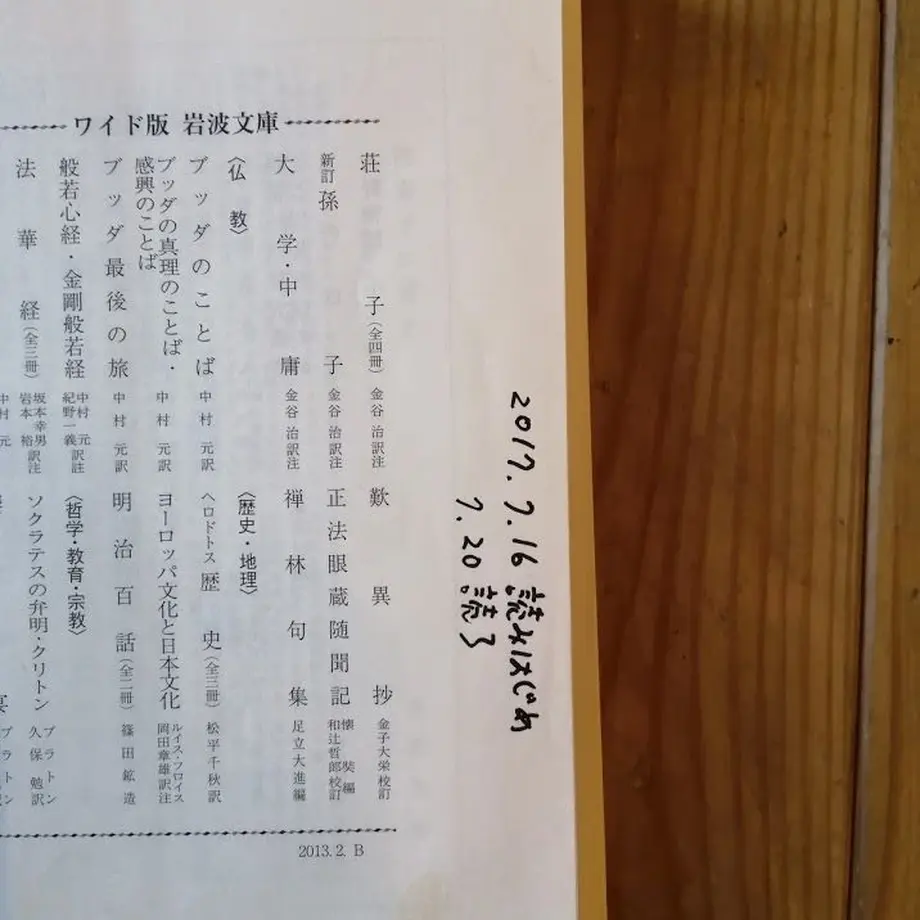 ワイド版 岩波文庫
荘子(全四冊) 金谷 治訳注
新訂 孫子 金谷 治訳注
大学・中庸 金谷 治訳注
〈仏教〉
ブッダのことば 中村 元訳
ブッダの真理のことば・
感興のことば 中村 元訳
ブッダ最後の旅 中村 元訳
般若心経・金剛般若経 中村 元
紀野一義訳註
法華経(全三冊) 坂本幸男
岩本 裕訳注
中村 元
歎異抄 金子大栄校訂
正法眼蔵随聞記 懐奘編
和辻哲郎校訂
禅林句集 足立大進編
〈歴史・地理〉
ヘロドトス 歴史(全三冊) 松平千秋訳
ヨーロッパ文化と日本文化 ルイス・フロイス
岡田章雄訳注
明治百話(全二冊) 篠田鉱造
〈哲学・教育・宗教〉
ソクラテスの弁明・クリトン プラトン
久保 勉訳
プラトン
2013. 2. B
2017. 7. 16 読みはじめ
7. 20 読了